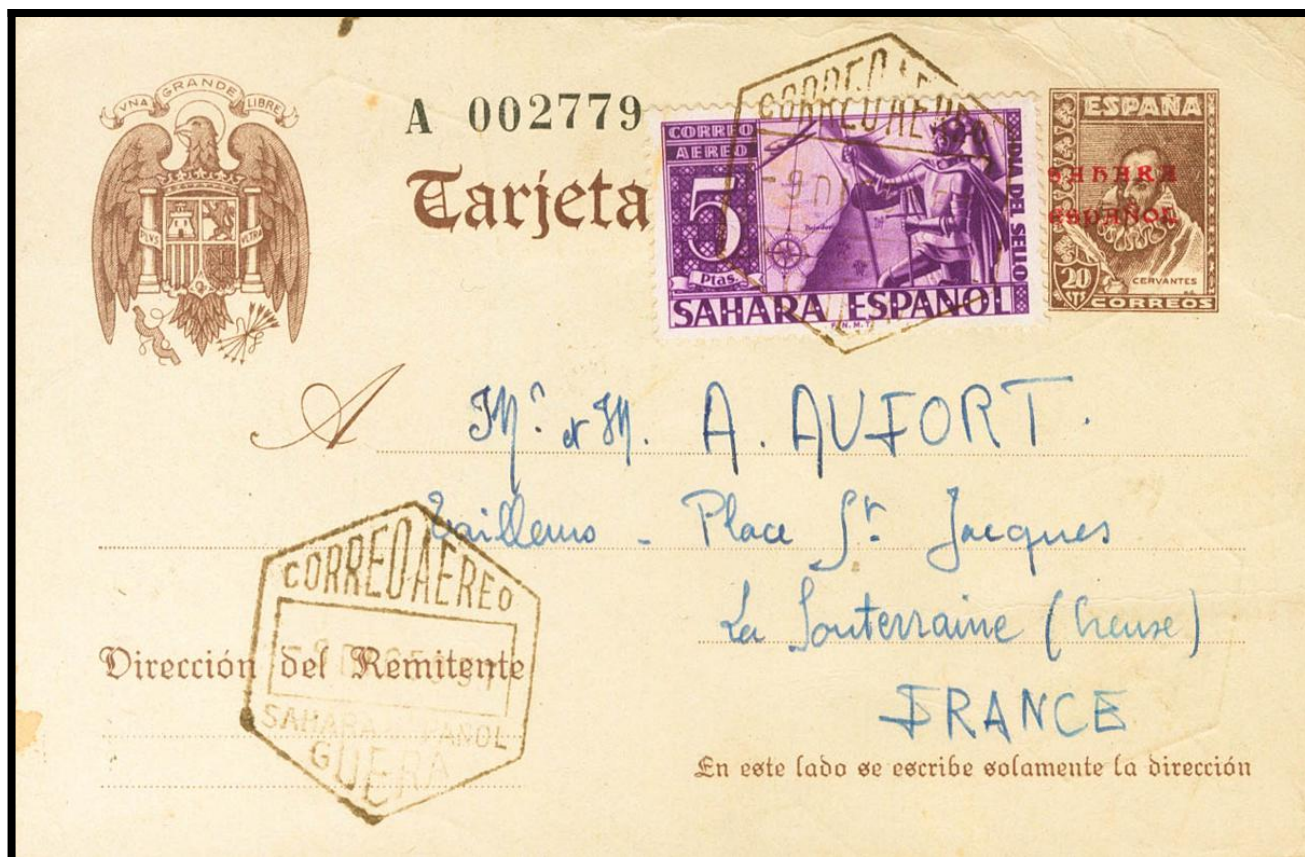 VNA GRANDE LIBRE
A 002779
Tarjeta
PLVS VLTRA
CORREO AEREO
CORREO
AEREO
5
Ptas.
DIA DEL SELLO
SAHARA ESPAÑOL
F.N.M.T.
ESPAÑA
SAHARA
ESPAÑOL
20
CERVANTES
CORREOS
A Mr. et M. A. AUFORT.
Place St. Jacques
La Souterraine (Creuse)
FRANCE
CORREO AEREO
SAHARA ESPAÑOL
GUERA
Dirección del Remitente
En este lado se escribe solamente la dirección